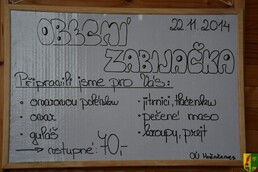 OBECNÍ 22.11.2014
ZABIJAČKA
Připravili jsme pro Vás:
• ovarovou polévku • jitrnici, tlačenku
• ovar • pečené maso
• guláš • kroupy, prejt
→ vstupné: 70,-
OÚ